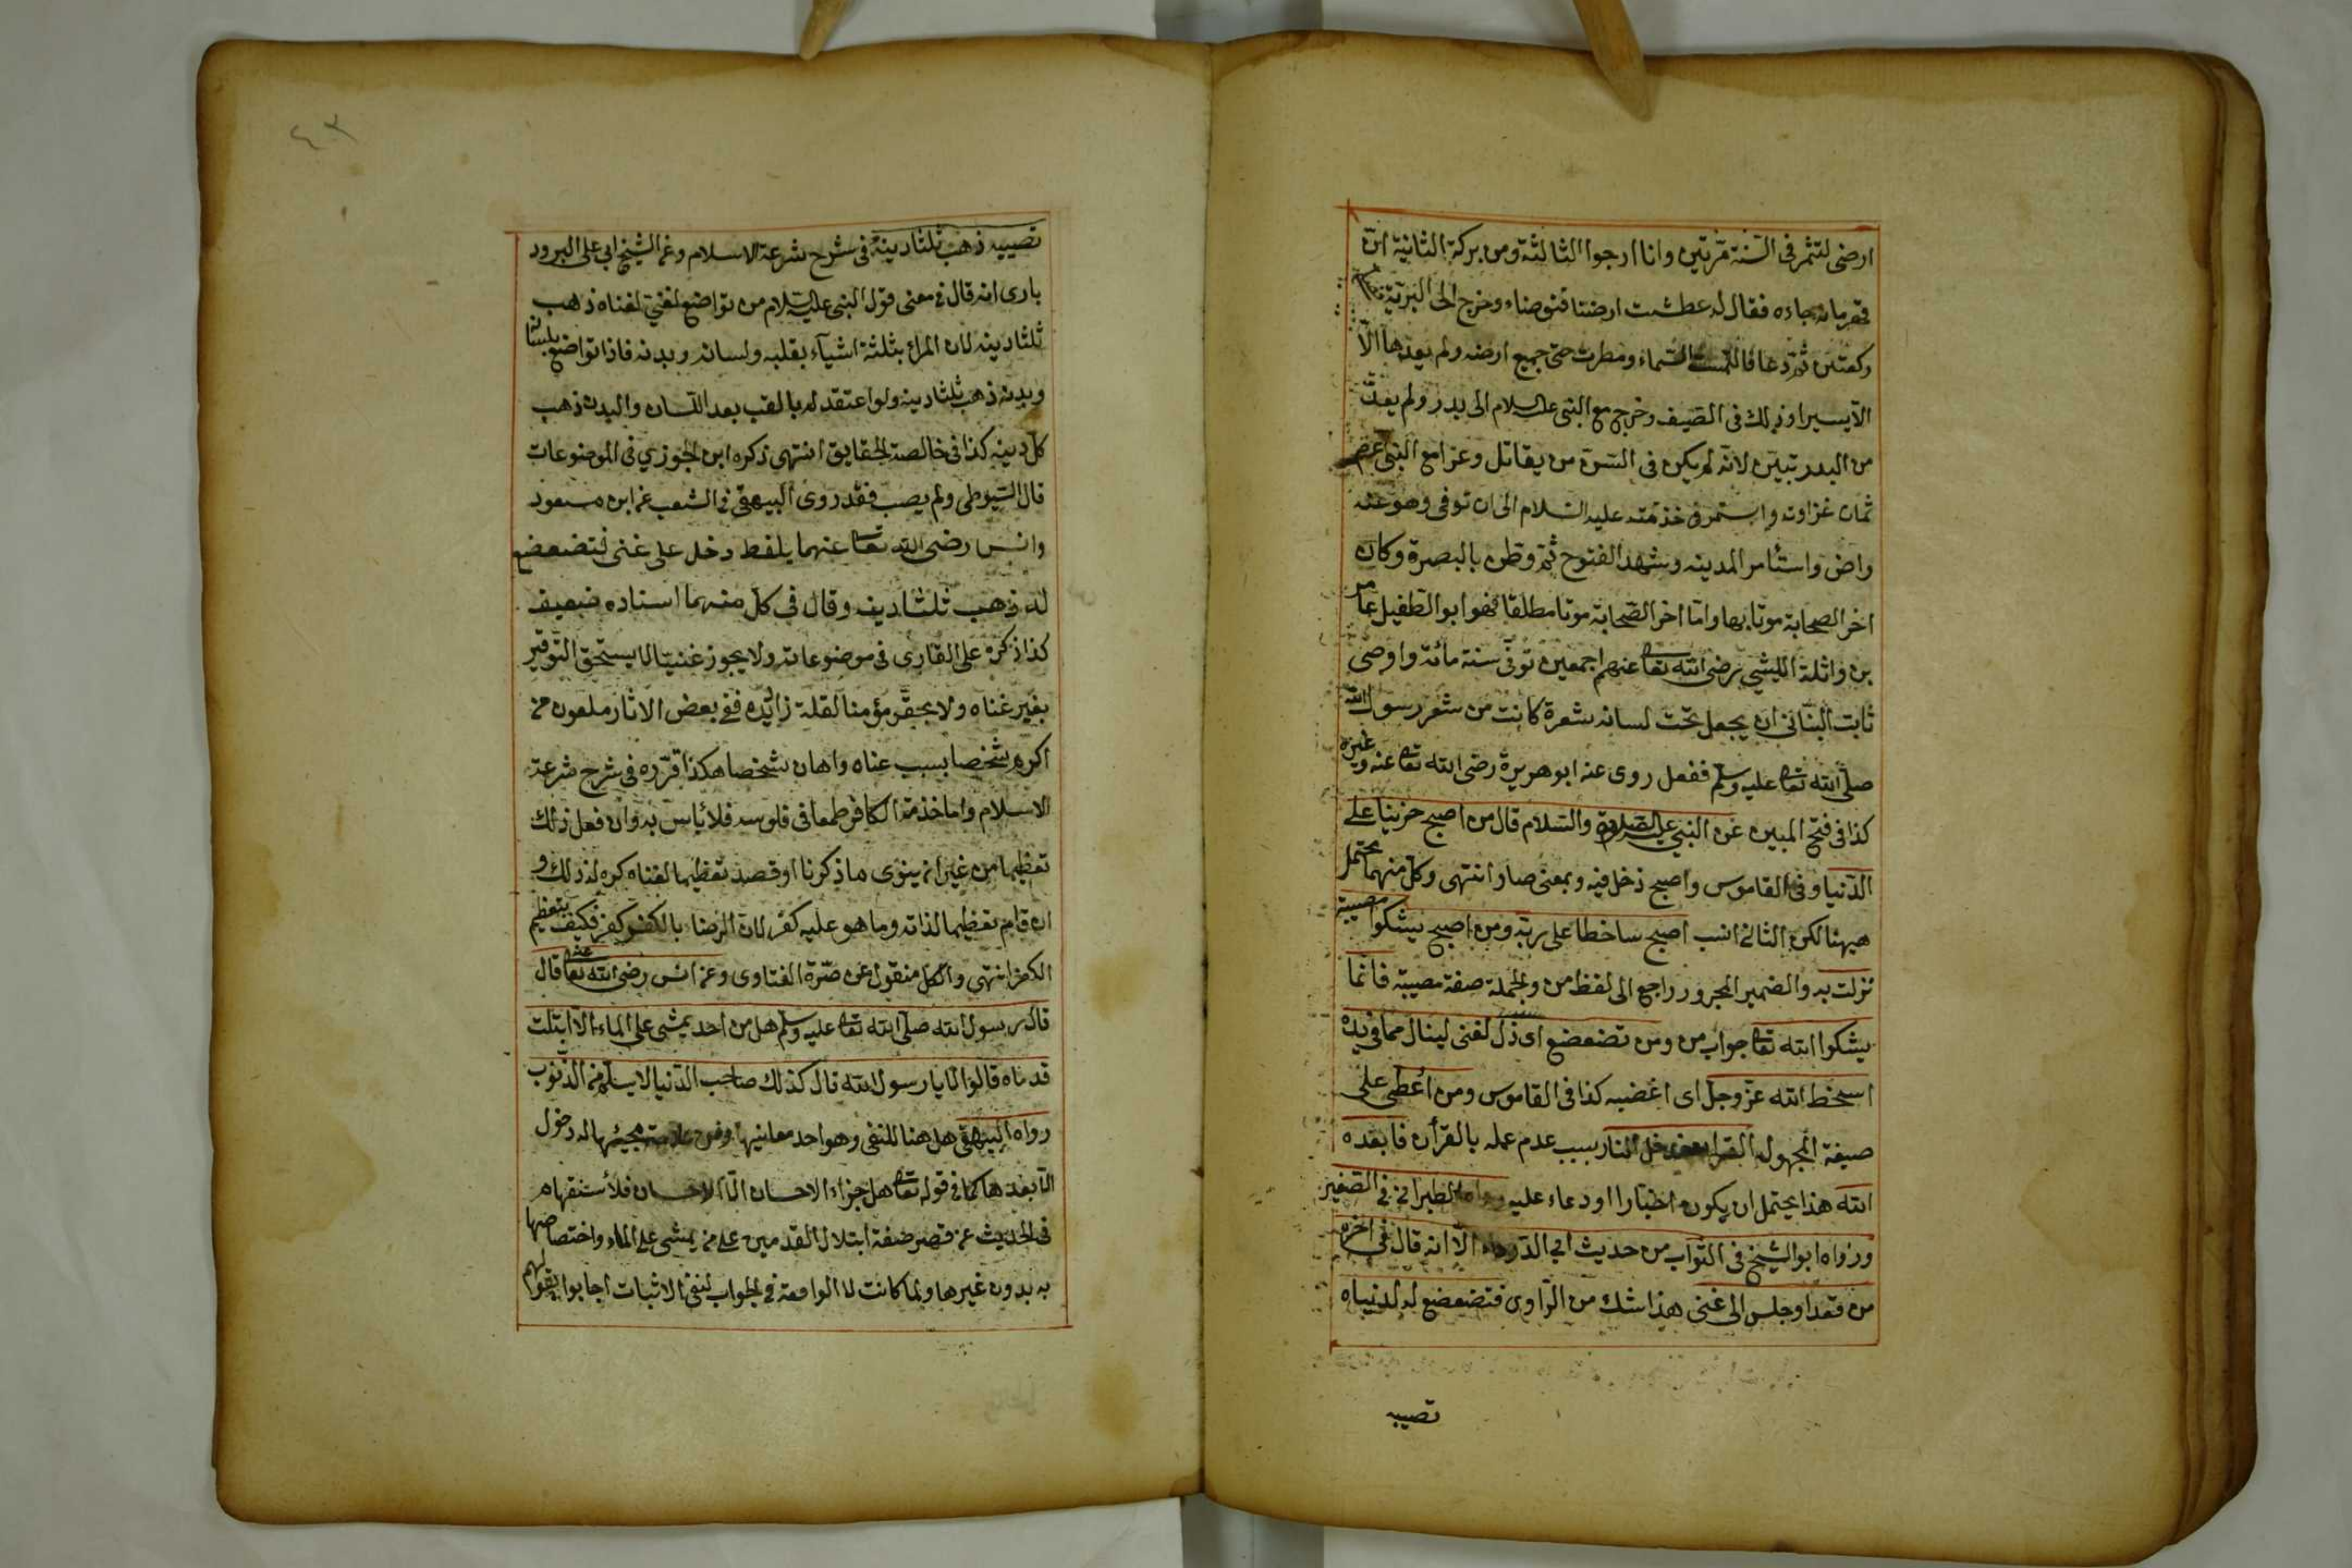 ارضى لتثمر فى السّنة مرّتين وانا ارجوا الثالثة ومن بركة الثانية انّ
قهرمانه جاءه فقال له عطشت ارضنا فتوضاء وخرج الى البرّيّة
ركعتين ثمّ دعا فالتمست السّماء ومطرت حتى جميع ارضه ولم يعدها الّا
الّا يسيرا وذلك فى الصّيف وخرج مع النبى عليه السلام الى بدر ولم يعدّ
من البدريّين لانّه لم يكن فى السّنّ من يقاتل وغزا مع النبى
ثمان غزاوت واستمر فى خدمته عليه السّلام الى ان توفى وهو عنه
راض واستأمر المدينه وشهد الفتوح ثمّ وقطن بالبصرة وكان
اخر الصحابة موتا بها وامّا اخر الصّحابة موتا مطلقا فهو ابو الطّفيل عامر
بن واثلة اللّيثى رضى الله تعا عنهم اجمعين توفّى سنة مائة واوصى
ثابت البنّانى ان يجعل تحت لسانه شعرة كانت من شعر رسول الله
صلّى الله تعا عليه وسلّم ففعل روى عنه ابو هريرة رضى الله تعا عنه وغيره
كذا فى فتح المبين عن النبىّ عليه الصّلوة والسّلام قال من اصبح حزينا على
الدّنيا وفى القاموس واصبح دخل فيه وبمعنى صار انتهى وكلّ منهما محتمل
هيهنا لكن الثانى انسب اصبح ساخطا على ربّه ومن اصبح يشكوا مصيبة
نزلت به والضمير المجرور راجع الى لفظ من والجملة صفة مصيبة فانّما
يشكوا الله تعا جواب من ومن تضعضع اى ذلّ لغنى لينال ممّا فى يده
اسخط الله عزّ وجلّ اى اغضبه كذا فى القاموس ومن اعطى على
صيغة المجهول القران فدخل النار بسبب عدم عمله بالقرأن فابعده
الله هذا يحتمل ان يكون اخبارا او دعاء عليه رواه الطبرانى فى الصّغير
ورواه ابو الشّيخ فى الثّواب من حديث ابى الدّرداء الّا انه قال فى اخره
من قعد او جلس الى غنى هذا شك من الرّاوى فتضعضع له لدنياه
تصيبه
٤٣
تصيبه ذهب ثلثا دينه فى شرح شرعة الاسلام وعن الشّيخ ابى على البرود
بارى انه قال فى معنى قول النبى عليه السّلام من تواضع لغنىّ لغناه ذهب
ثلثا دينه لان المرأ بثلثة اشيآء بقلبه ولسانه وبدنه فاذا تواضع بلسانه
وبدنه ذهب ثلثا دينه ولو اعتقد له بالقب بعد اللّسان والبدن ذهب
كلّ دينه كذا فى خالصة الحقايق انتهى ذكره ابن الجوزى فى الموضوعات
قال السّيوطى ولم يصب فقد روى البيهقى فى الشعب عن ابن مسعود
وانس رضى الله تعا عنهما بلفظ دخل على غنى فتضعضع
له ذهب ثلثا دينه وقال فى كلّ منهما اسناده ضعيف
كذا ذكره على القارى فى موضوعاته ولا يجوز غنيّا لا يستحقّ التّوقير
بغير غناه ولا يحقّر مؤمنا لقلة زائده ففى بعض الاثار ملعون من
اكرم شخصا بسبب غناه واهان شخصا هكذا قرّره فى شرح شرعة
الاسلام واما خذمة الكافر طمعا فى فلوسه فلا بأس به وان فعل ذلك
تعظيما من غير ان ينوى ما ذكرنا او قصد تعظيما لغناه كره له ذلك و
ان قام تعظيما لذاته وما هو عليه كفر لان الرضا بالكفر كفر فكيف بتعظيم
الكفر انتهى والكلّ منقول عن صرّة الفتاوى وعن انس رضى الله تعا عنه قال
قال رسول الله صلّى الله تعا عليه وسلّم هل من احد يمشى على الماء الّا ابتلت
قدماه قالوا لا يا رسول الله قال كذلك صاحب الدّنيا لا يسلم من الذّنوب
رواه البيهقى هل هنا للنفى وهو احد معانيها ومن علامة مجيئها له دخول
الّا بعدها كما فى قوله تعا هل جزاء الاحسان الّا الاحسان فلا ستفهام
فى الحديث عن قصر صفة ابتلال القدمين على من يمشى على الماء واختصاصها
به بدون غيرها ولما كانت لا الواقعة فى الجواب لنفى الاثبات اجابوا بقولهم